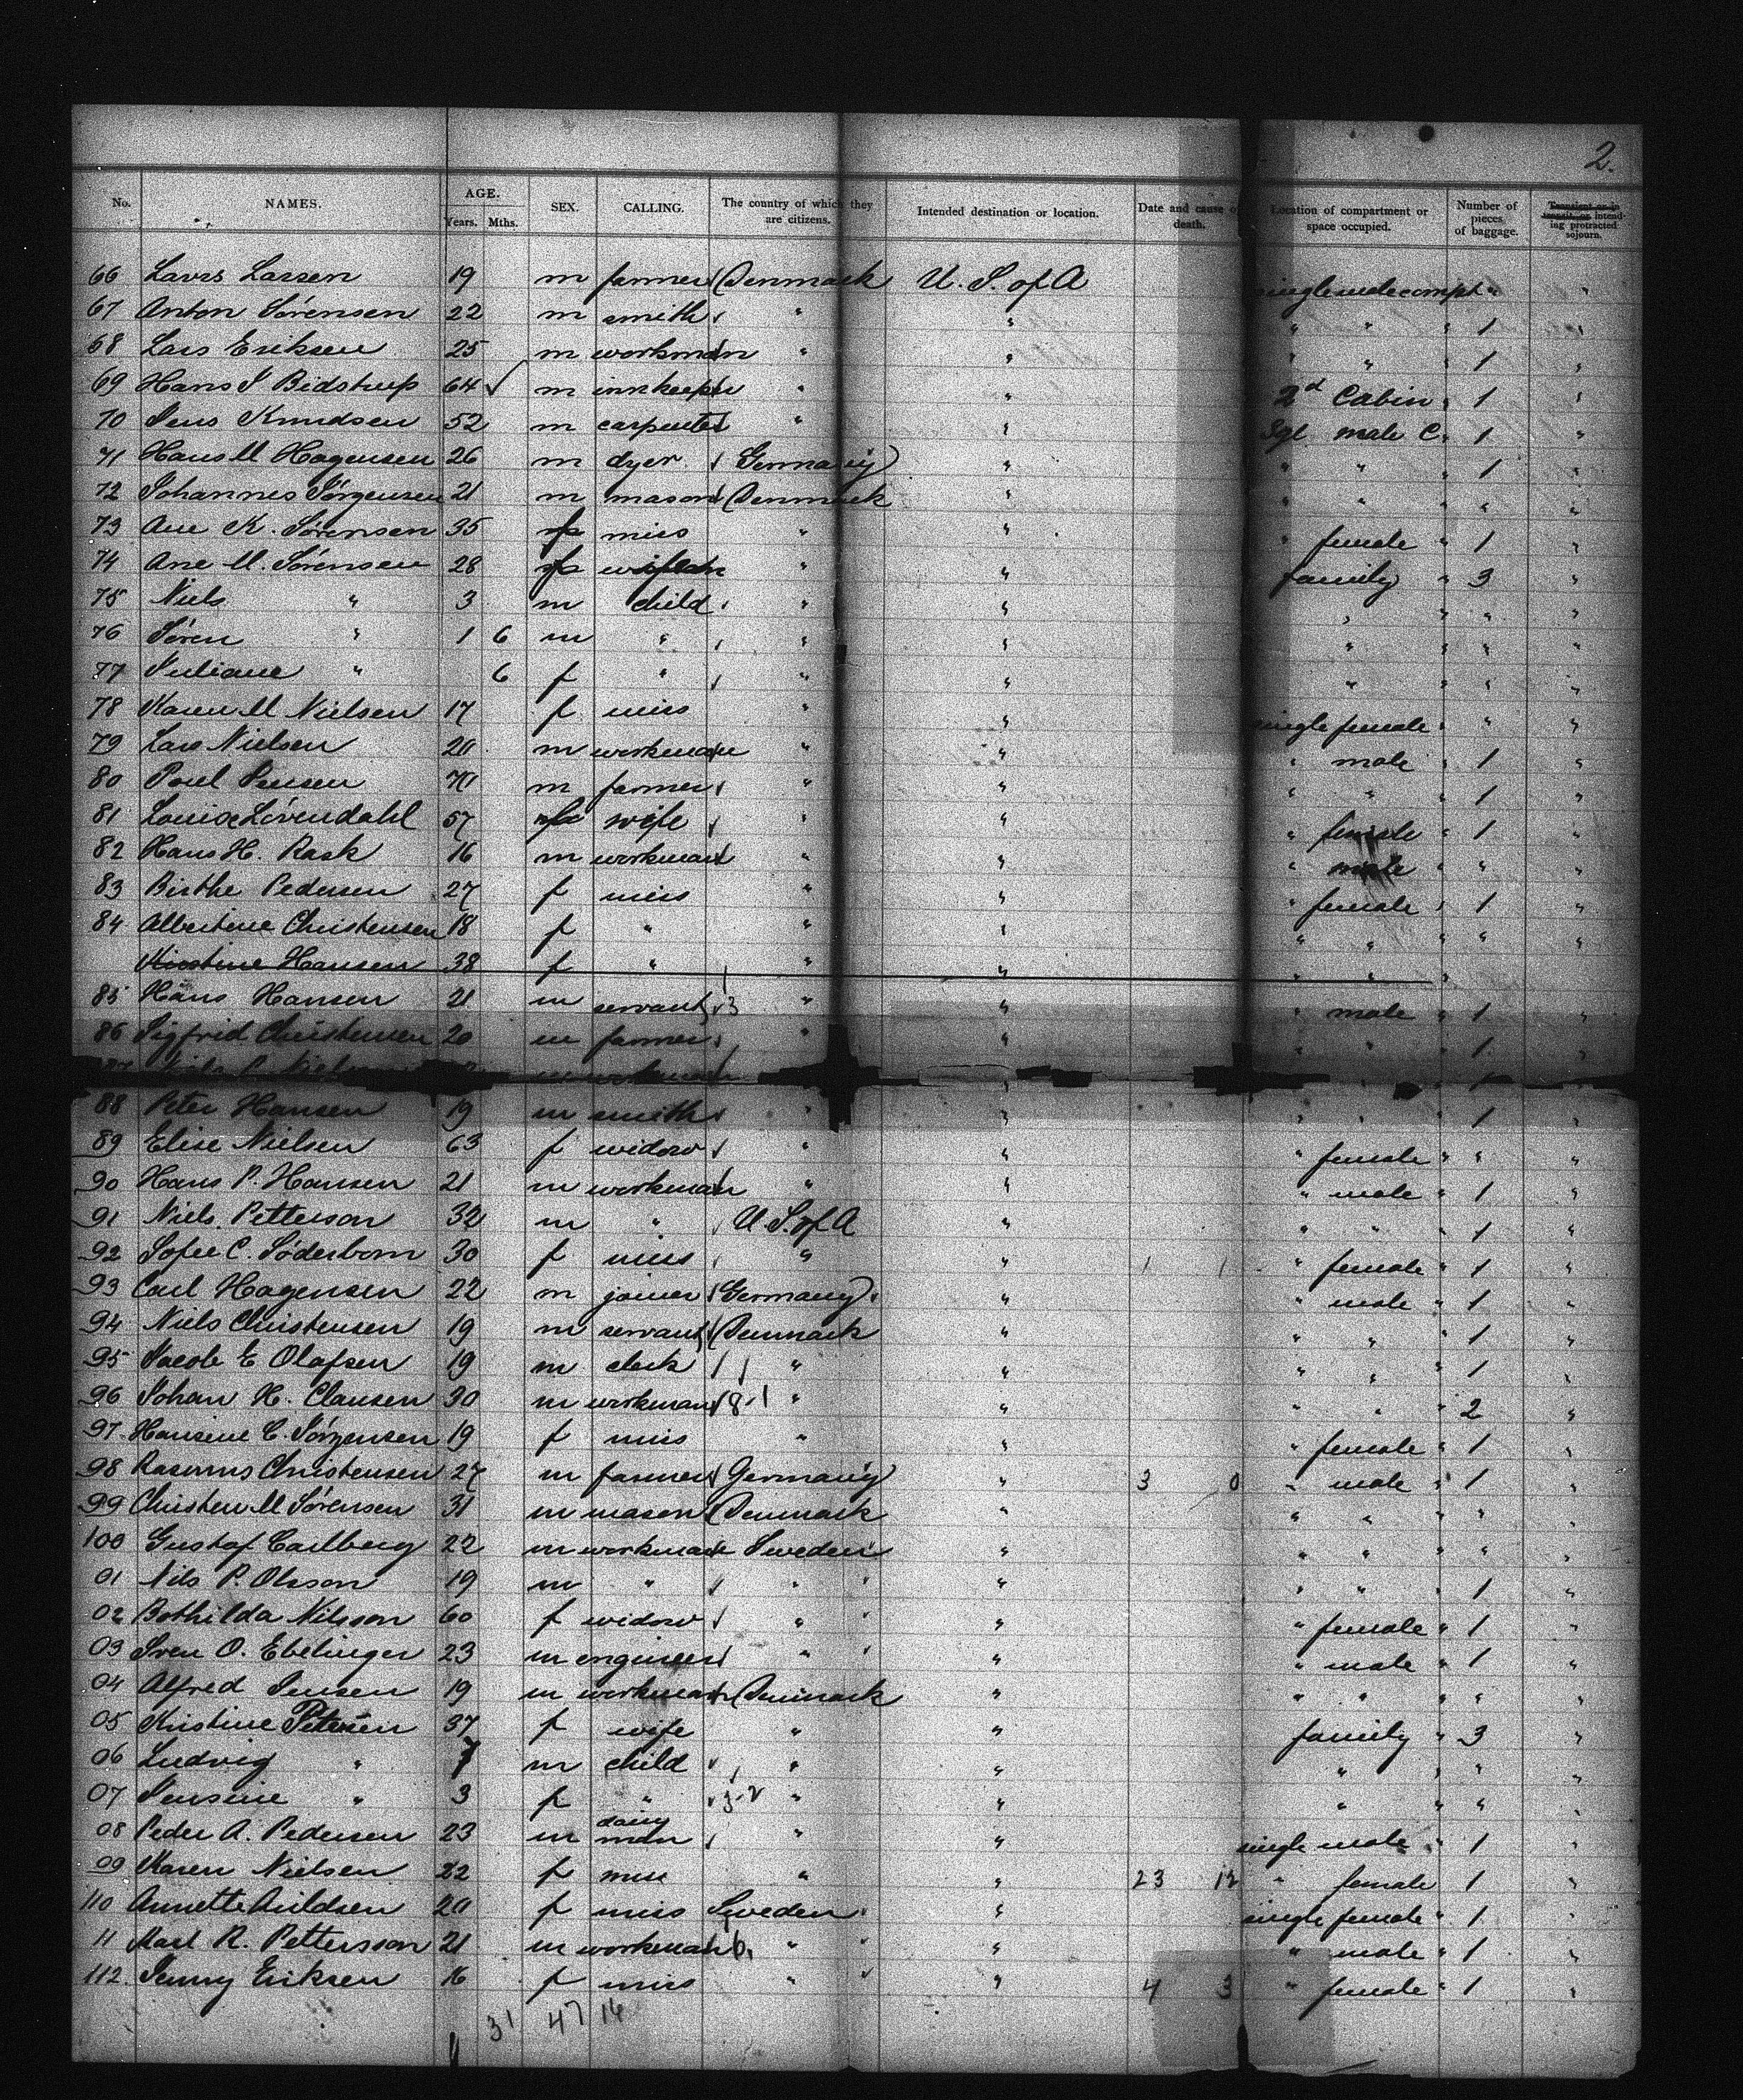 2.
No. NAMES. AGE. Years. Mths. SEX. CALLING. The country of which they are citizens. Intended destination or location. Date and cause of death. Location of compartment or space occupied. Number of pieces of baggage. Transient or in transit, or intending protracted sojourn.
66 Lavrs Larsen 19 m farmer Denmark U. S. of A single male compt "
67 Anton Sörensen 22 m smith " " " " " 1 "
68 Lars Eriksen 25 m workman " " " " 1 "
69 Hans J Bidstrup 64 ✓ m innkeeper " " 2d Cabin " 1 "
70 Jens Knudsen 52 m carpenter " " Sgl male C. 1 "
71 Hans M Hagensen 26 m dyer Germany " " " 1 "
72 Johannes Jörgensen 21 m mason Denmark " " " " "
73 Ane K. Sörensen 35 f miss " " " female " 1 "
74 Ane M. Sörensen 28 f wife " " family " 3 "
75 Niels " 3 m child " " " " " "
76 Sören " 1 6 m " " " " " " "
77 Juliane " 6 f " " " " " " "
78 Karen M Nielsen 17 f miss " " single female " " "
79 Lars Nielsen 20 m workman " " " male " 1 "
80 Poul Jensen 70 m farmer " " " " " 1 "
81 Louise Lövendahl 57 f wife " " " female " 1 "
82 Hans H. Rask 16 m workman " " " male " " "
83 Birthe Pedersen 27 f miss " " " female " 1 "
84 Albertine Christensen 18 f " " " " " " " "
Kirstine Hansen 38 f " " " " " "
85 Hans Hansen 21 m servant 3 " " " male " 1 "
86 Sigfrid Christensen 20 m farmer " " " " 1 "
87 m workman
88 Peter Hansen 19 m smith " " " " " 1 "
89 Elise Nielsen 63 f widow " " " female " " "
90 Hans P. Hansen 21 m workman " " " male " 1 "
91 Niels Petterson 32 m " U S. of A " " " 1 "
92 Sofie C. Söderbom 30 f miss " " 1 1 " female " 1 "
93 Carl Hagensen 22 m joiner Germany " " male " 1 "
94 Niels Christensen 19 m servant Denmark " " " 1 "
95 Jacob E Olafsen 19 m clerk " " " " " 1 "
96 Johan H. Clausen 30 m workman 8.1 " " " " " 2 "
97 Hansine C. Jörgensen 19 f miss " " " female " 1 "
98 Rasmus Christensen 27 m farmer Germany " 3 0 " male " 1 "
99 Christen M Sörensen 31 m mason Denmark " " " " " "
100 Gustaf Carlberg 22 m workman Sweden " " " " " "
01 Nils P. Olsson 19 m " " " " " 1 "
02 Bothilda Nilsson 60 f widow " " " female " 1 "
03 Sven O. Ebelinger 23 m engineer " " " male " 1 "
04 Alfred Jensen 19 m workman Denmark " " " " " "
05 Kristine Petersen 37 f wife " " family " 3 "
06 Ludvig " 7 m child " " " " " "
07 Jensine " 3 f " 3-2 " " " " " "
08 Peder A. Pedersen 23 m dairy man " " single male " 1 "
09 Karen Nielsen 22 f miss " " 23 12 " female 1 "
110 Annette Arildsen 20 f miss Sweden " single female " 1 "
11 Karl R. Pettersson 21 m workman 6. " " " male " 1 "
112. Jenny Eriksen 16 f miss " " 4 3 " female " 1 "
31 47 16